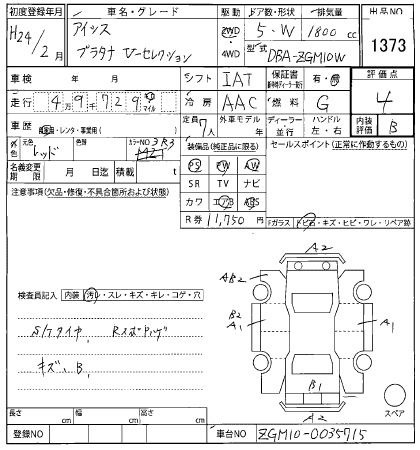 初度登録年月
H24/2月
車名・グレード
アイシス
プラタナ Vーセレクション
駆動 ドア数・形状 排気量
2WD 4WD 5・W 1800cc
型式 DBA-ZGM10W
出品NO
1373
車検 年 月
シフト IAT
保証書 有・無
評価点 4
走行 49729 キロ マイル
冷房 AAC
燃料 G
車歴 自家用・レンタ・事業用( )
定員 7人
外車モデル 年
ディーラー 並行
ハンドル 左・右
内装評価 B
外色 元色 レッド 色替 カラーNO 3R3
装備品(純正品に限る)
セールスポイント(正常に作動するもの)
名義変更期限 月 日迄 積載 t
PS PW AW
SR TV ナビ
カワ エアB ABS
R券 11,750円
注意事項(欠品・修復・不具合箇所および状態)
Fガラス トビ石・キズ・ヒビ・ワレ・リペア跡
検査員記入 内装 汚レ・スレ・キズ・キレ・コゲ・穴
S/タイヤ
キズ、B1
A2
AB2
B2
A1
A1
B1
A2
スペア
長さ cm 幅 cm 高さ cm
登録NO
車台NO ZGM10-0035715